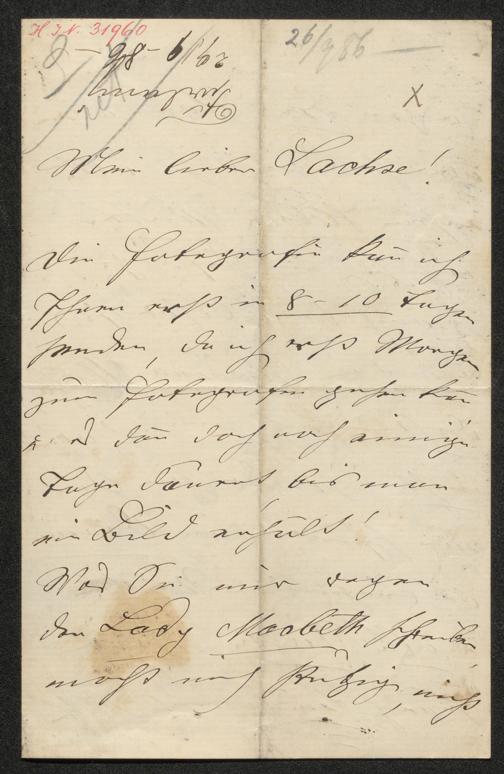 H.I.N. 31960
26/9 86
x
Mein lieber Sachse!
Die Fotografie kan ich
Ihnen erst in 8-10 Tagen
senden, da ich erst Morgen
zum Fotografen gehen kan
u. es dan doch noch einige
Tage dauert, bis man
ein Bild erhält!
Was Sie mir wegen
der Lady Macbeth schreiben,
macht mich stutzig, mich